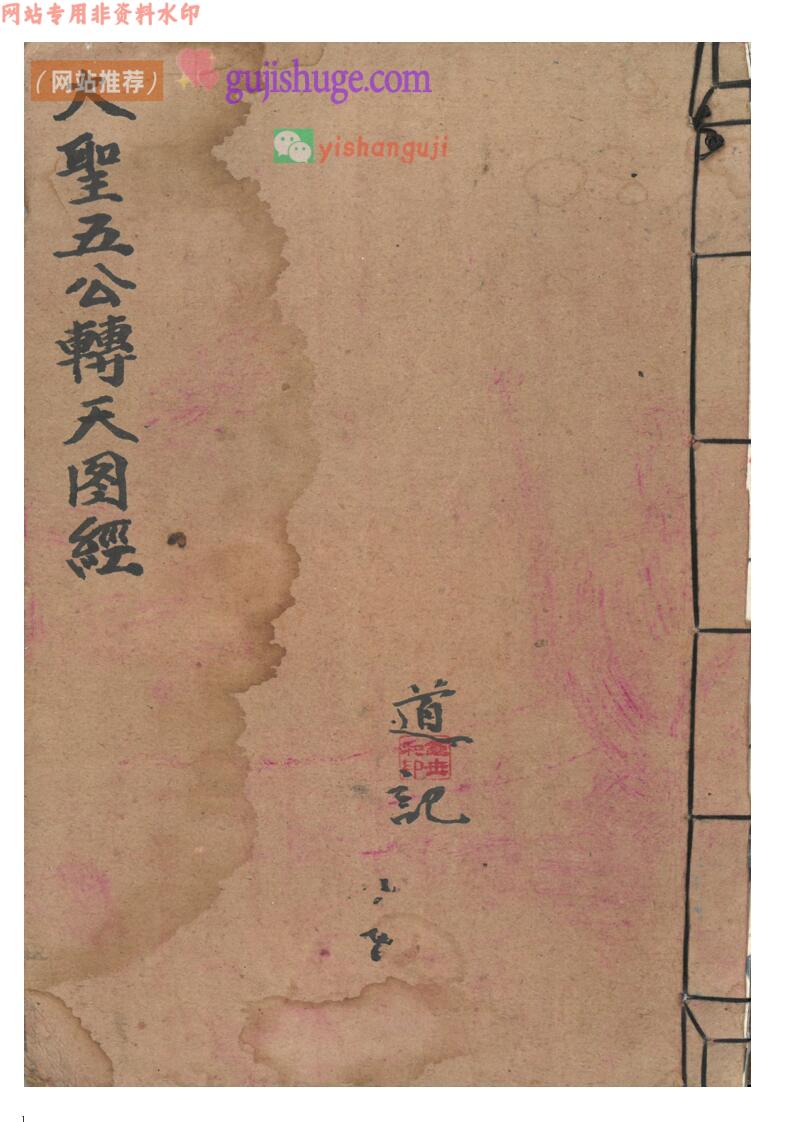 网站专用非资料水印
（网站推荐）
gujishuge.com
yishanguji
大聖五公轉天图經
道記
1